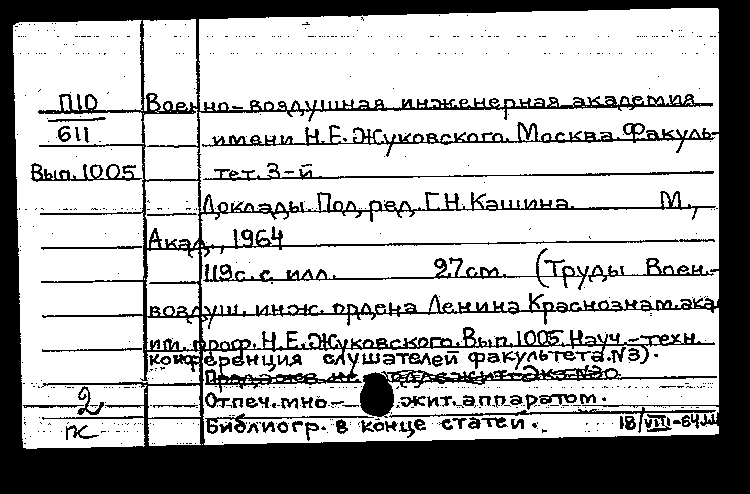 П10 Военно-воздушная инженерная академия
611 имени Н.Е.Жуковского. Москва. Факуль-
Вып.1005 тет. 3-й.
Доклады. Под ред. Г.Н.Кашина. М.,
Акад., 1964
119с. с илл. 27см. (Труды Воен.-
воздуш. инж. ордена Ленина Краснознам. ака
им. проф. Н.Е.Жуковского. Вып.1005. Науч.-техн.
конференция слушателей факультета.N3).
Продаже не подлежит. Экз.N30
2 Отпеч. мно- жит. аппаратом.
Библиогр. в конце статей. 18/VIII-64